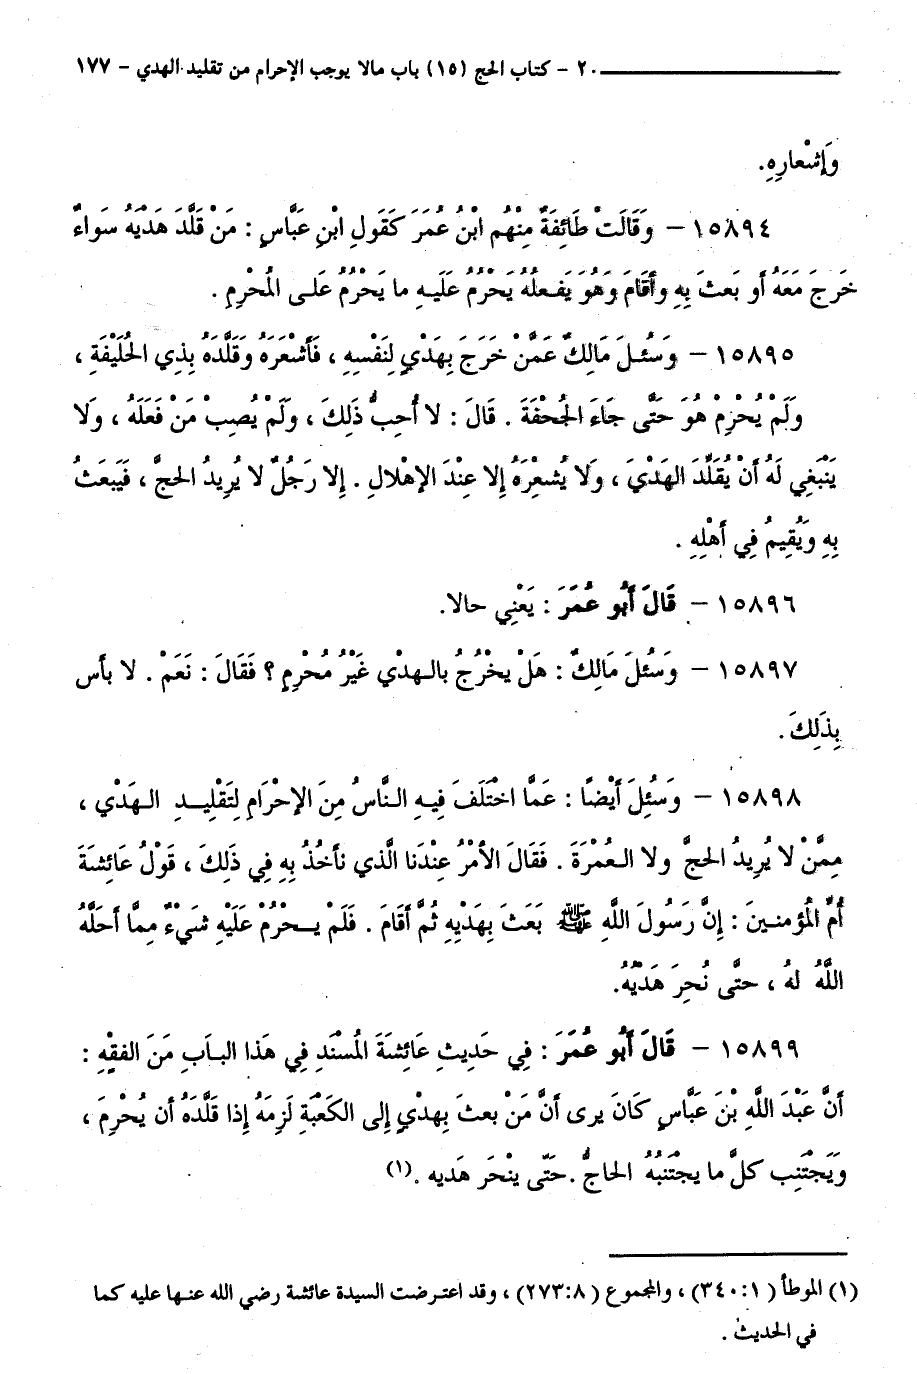 ٢٠ - كتاب الحج (١٥) باب مالا يوجب الإحرام من تقليد الهدي - ١٧٧
وَإِشْعارِهِ.
١٥٨٩٤ - وَقَالَتْ طَائِفَةٌ مِنْهُم ابْنُ عُمَرَ كَقَولِ ابْنِ عَبَّاسٍ : مَنْ قَلَّدَ هَدْيَهُ سَواءٌ
خَرَجَ مَعَهُ أو بَعثَ بِهِ وأقَامَ وَهُوَ يَفعلُهُ يَحْرُمُ عَلَيهِ ما يَحْرُمُ عَلى المُحْرِمِ .
١٥٨٩٥ - وَسُئلَ مَالِكٌ عَمَّنْ خَرَجَ بِهَدْيٍ لِنَفْسِهِ ، فَأشْعَرَهُ وَقَلَّدَهُ بِذِي الحُلَيْفَةِ ،
وَلَمْ يُحْرِمْ هُوَ حَتَّى جَاءَ الجُحْفَةَ . قَالَ : لا أُحِبُّ ذَلِكَ ، وَلَمْ يُصِبْ مَنْ فَعَلَهُ ، وَلَا
يَنْبَغِي لَهُ أنْ يُقَلِّدَ الهَدْيَ ، وَلَا يُشعْرَهُ إلا عِنْدَ الإهْلالِ . إلا رَجُلٌ لا يُرِيدُ الحَجَّ ، فَيَبعَثُ
بِهِ وَيُقِيمُ فِي أَهْلِهِ .
١٥٨٩٦ - قَالَ أَبُو عُمَرَ : يَعْنِي حالا.
١٥٨٩٧ - وَسُئلَ مَالِكٌ : هَلْ يخْرُجُ بالهدْي غَيْرُ مُحْرِمٍ ؟ فَقَالَ : نَعَمْ . لا بأس
بِذَلِكَ .
١٥٨٩٨ - وَسُئِلَ أيْضاً : عَمَّا اخْتَلَفَ فِيهِ النَّاسُ مِنَ الإحْرَامِ لِتَقْلِيدِ الهَدْي ،
مِمَّنْ لا يُرِيدُ الحَجَّ ولا العُمْرَةَ . فَقَالَ الأمْرُ عِنْدَنا الَّذي نأخُذُ بِهِ فِي ذَلِكَ ، قَوْلُ عَائشَةَ
أُمِّ المُؤمنينَ : إنَّ رَسُولَ اللَّهِ ﷺ بَعَثَ بِهَدْيِهِ ثُمَّ أقَامَ . فَلَمْ يحْرُمْ عَلَيْهِ شَيءٌ مِمَّا أحَلَّهُ
اللَّهُ لهُ ، حتَّى نُحِرَ هَدْيُهُ.
١٥٨٩٩ - قَالَ أَبُو عُمَرَ : فِي حَدِيثِ عَائِشَةَ المُسْنَدِ فِي هَذَا البَابِ مَنَ الفقِهْ :
أنَّ عَبْدَ اللَّهِ بْنَ عَبَّاسٍ كَانَ يرى أنَّ مَنْ بعثَ بِهدْيٍ إلى الكَعْبَةِ لَزِمَهُ إذَا قَلَّدَه أن يُحْرِمَ ،
وَيَجْتَنِب كلَّ ما يجْتَنبُهُ الحاجُّ .حَتّى ينْحَر هَديه .(١)
(١) الموطأ (١ : ٣٤٠)، والمجموع (٨ : ٢٧٣) ، وقد اعترضت السيدة عائشة رضي الله عنها عليه كما
في الحديث .